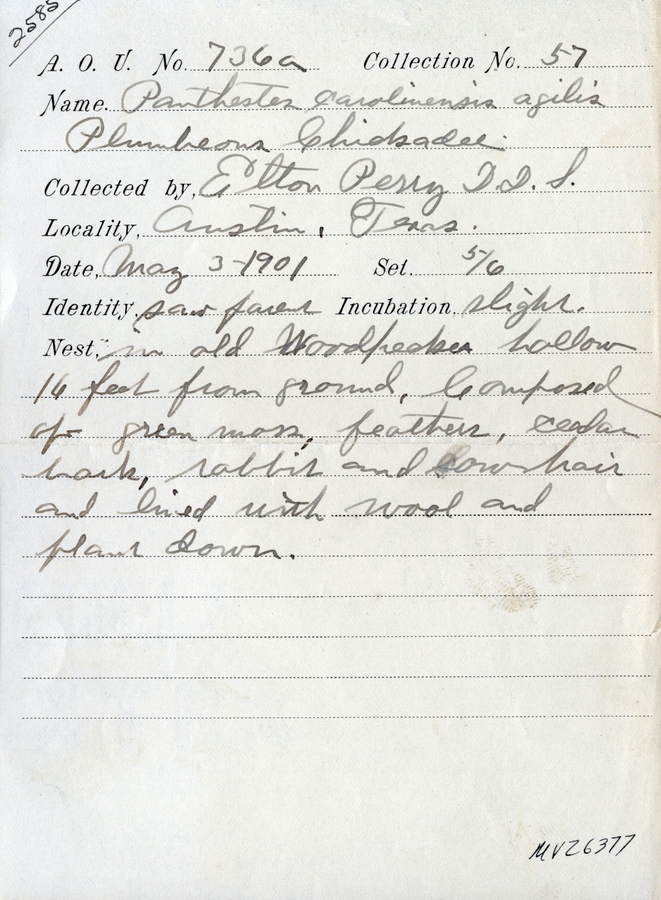 2585
A. O. U. No. 736a Collection No. 57
Name. Panthestes carolinensis agilis
Plumbeous Chickadee.
Collected by, Elton Perry D.D.S.
Locality, Austin, Texas.
Date, May 3-1901 Set. 5/6
Identity, saw parent Incubation, slight.
Nest, in old Woodpecker hollow
16 feet from ground, Composed
of green moss, feathers, cedar
bark, rabbit and cow hair
and lined with wool and
plant down.
MVZ6377